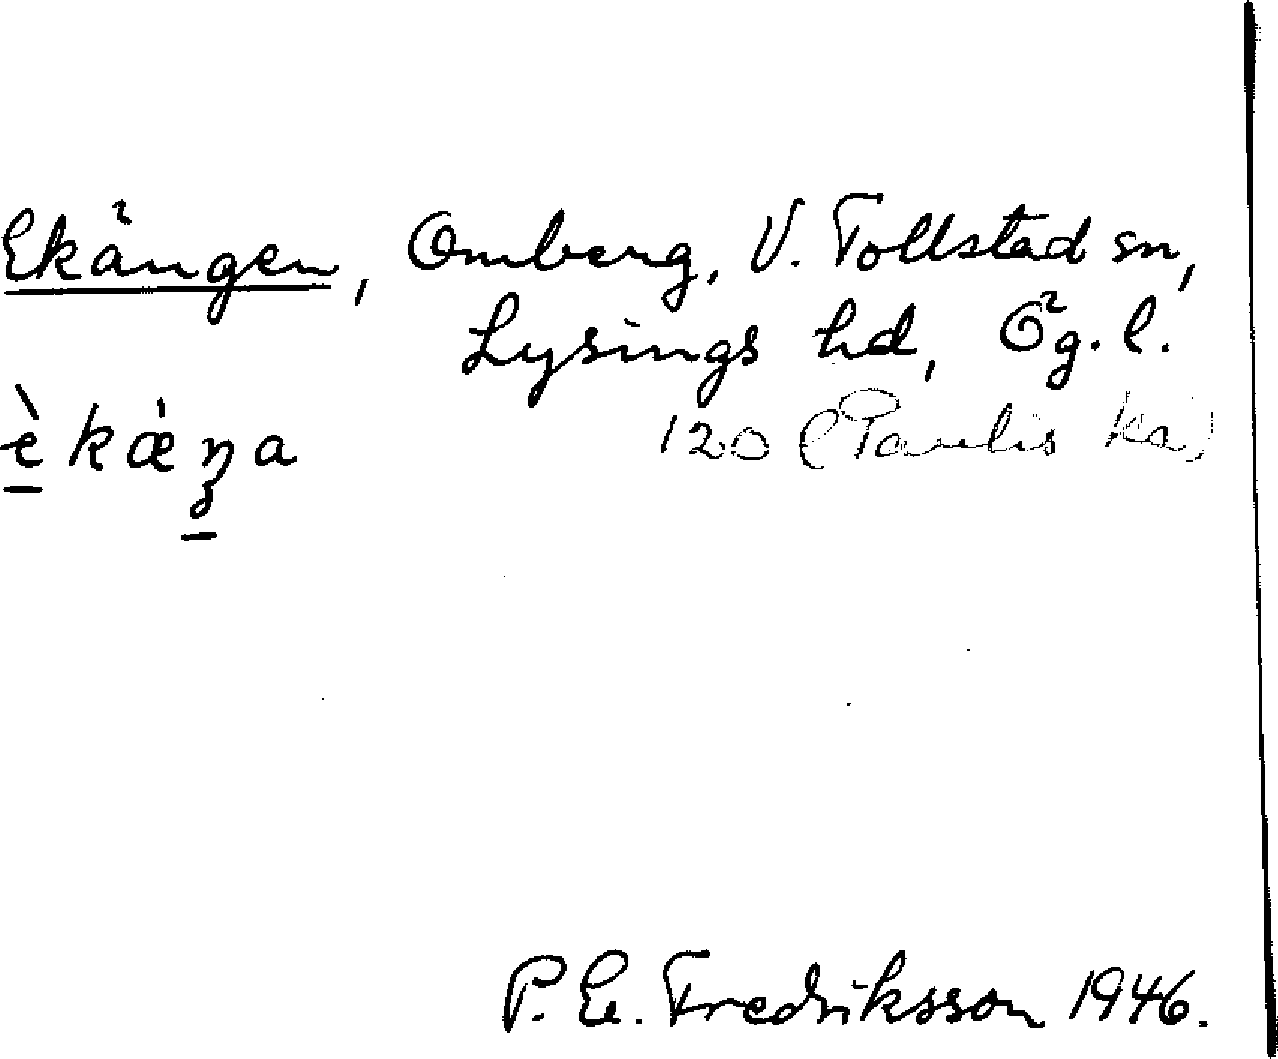 Ekängen, Omberg, V. Tollstad sn,
Lysings hd, Ög. l.
è kǽŋa
120 (Paulis ka)
P. E. Fredriksson 1946.